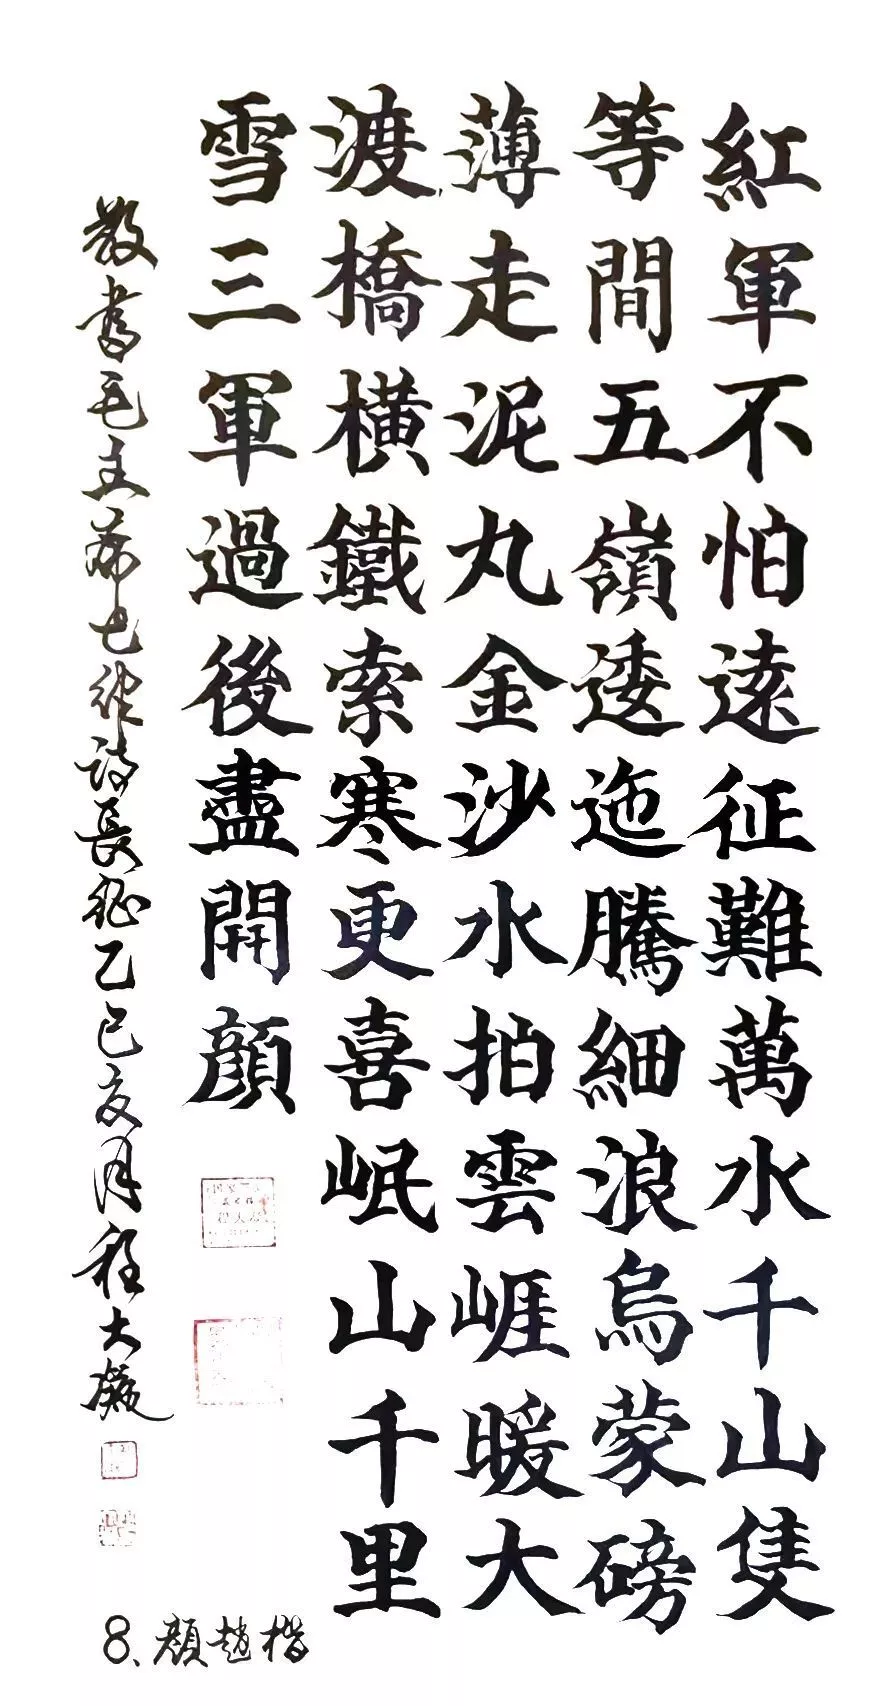 紅軍不怕遠征難萬水千山隻
等間五嶺逶迤騰細浪烏蒙磅
薄走泥丸金沙水拍雲崕暖大
渡橋橫鐵索寒更喜岷山千里
雪三軍過後盡開顔
敬書毛主席七律詩長征乙巳亥月程大瀛
8、顔趙楷